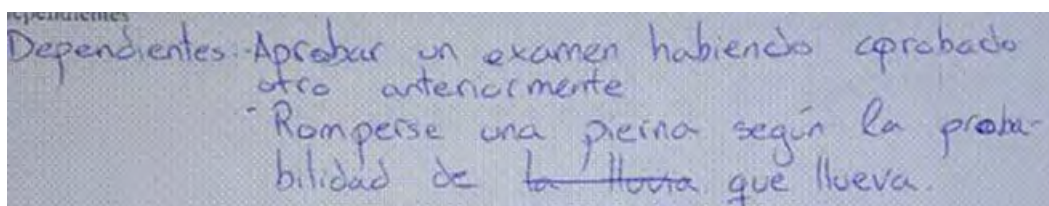 ependientes
Dependientes:-Aprobar un examen habiendo aprobado
otro anteriormente
- Romperse una pierna según la proba-
bilidad de la lluvia que llueva.